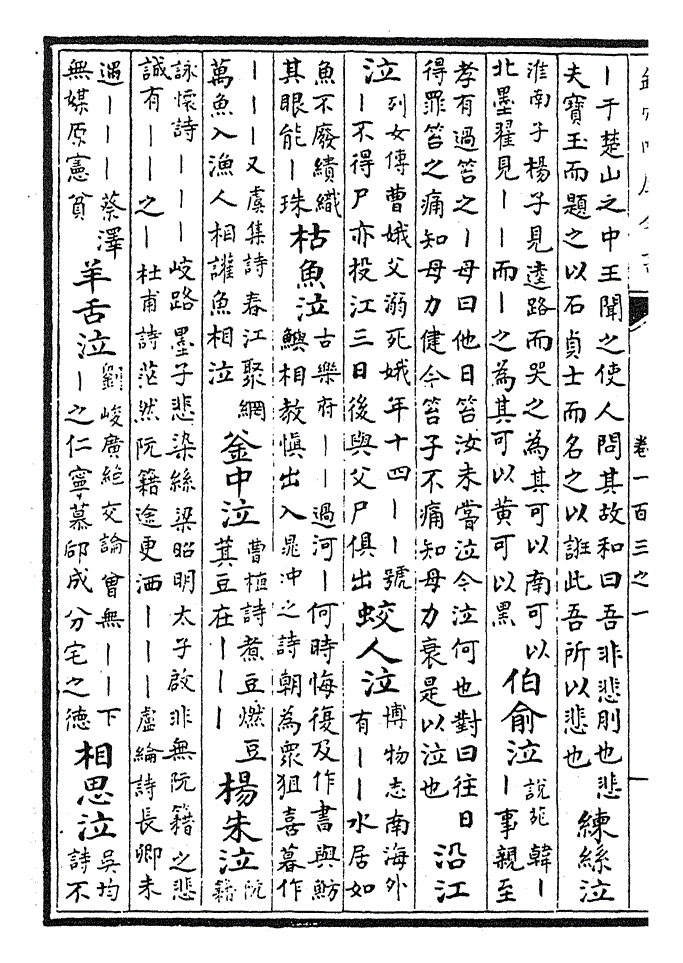 卷一百三之一
丨于楚山之中王聞之使人問其故和曰吾非悲刖也悲
夫寶玉而題之以石貞士而名之以誑此吾所以悲也
練絲泣
淮南子楊子見逵路而哭之為其可以南可以
北墨翟見丨丨而丨之為其可以黄可以黑
伯俞泣
說苑韓丨
丨事親至
孝有過笞之丨母曰他日笞汝未嘗泣今泣何也對曰往日
得罪笞之痛知母力健今笞子不痛知母力衰是以泣也
沿江
泣
列女傳曹娥父溺死娥年十四丨丨號
丨不得尸亦投江三日後與父尸俱出
蛟人泣
博物志南海外
有丨丨水居如
魚不廢績織
其眼能丨珠
枯魚泣
古樂府丨丨過河丨何時悔復及作書與魴
鱮相教慎出入晁冲之詩朝為衆狙喜暮作
丨丨丨又虞集詩春江聚網
萬魚入漁人相讙魚相泣
釜中泣
曹植詩煮豆燃豆
萁豆在丨丨丨
楊朱泣
阮
籍
詠懷詩丨丨丨岐路墨子悲染絲梁昭明太子啟非無阮籍之悲
誠有丨丨之丨杜甫詩茫然阮籍途更洒丨丨丨盧綸詩長卿未
遇丨丨丨蔡澤
無媒原憲貧
羊舌泣
劉峻廣絶交論曾無丨丨下
丨之仁寧慕郈成分宅之德
相思泣
吳均
詩不